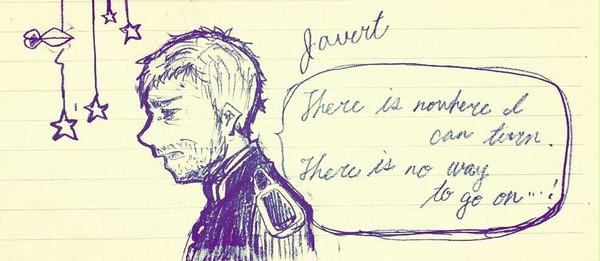 Javert
There is nowhere I
can turn.
There is no way
to go on...!